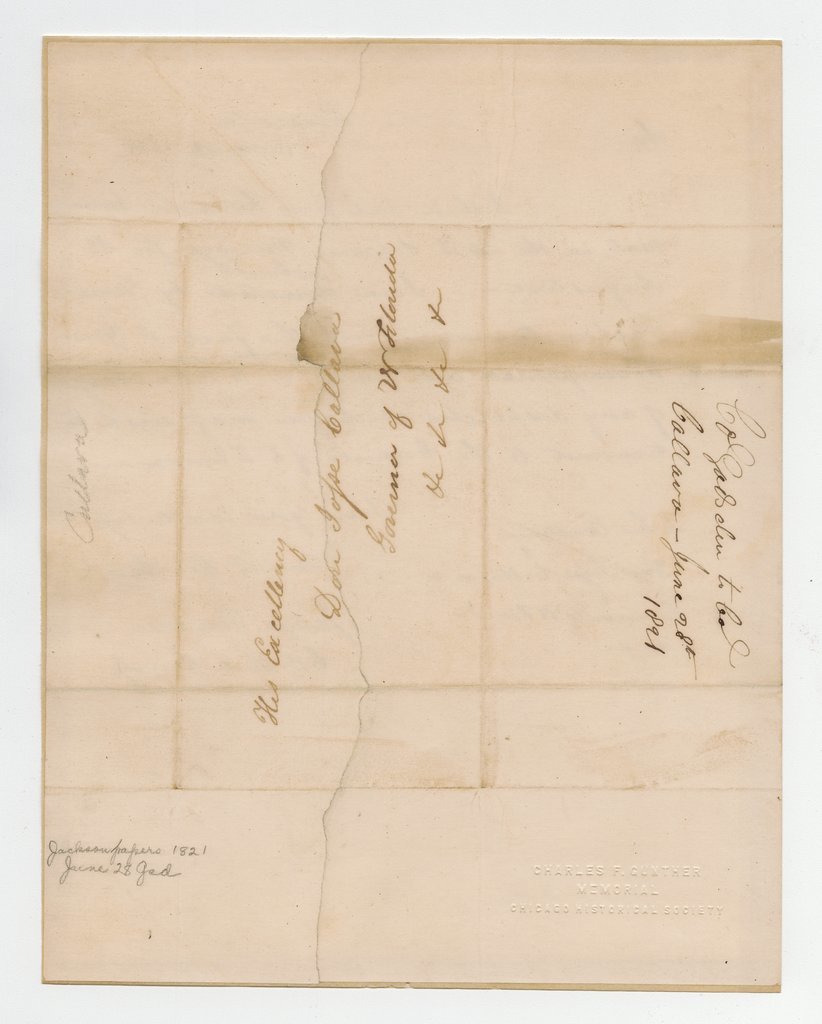 His Excellency
Don Jose Callava
Governor of W Florida
&c &c &c &c
Col Gadsden to Col
Callava - June 28th
1821
Callava
Jackson papers 1821
June 28 Gad
CHARLES F. GUNTHER
MEMORIAL
CHICAGO HISTORICAL SOCIETY